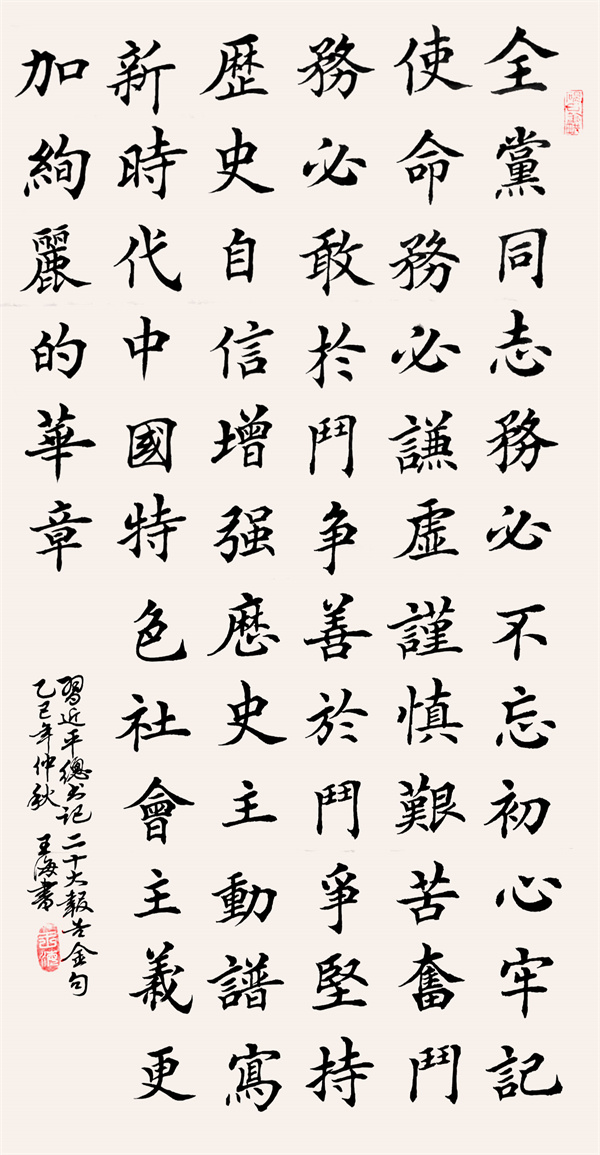 全黨同志務必不忘初心牢記
使命務必謙虛謹慎艱苦奮鬥
務必敢於鬥争善於鬥爭堅持
歷史自信增强歷史主動譜寫
新時代中國特色社會主義更
加絢麗的華章
習近平總书记二十大報告金句
乙巳年仲秋 王海書